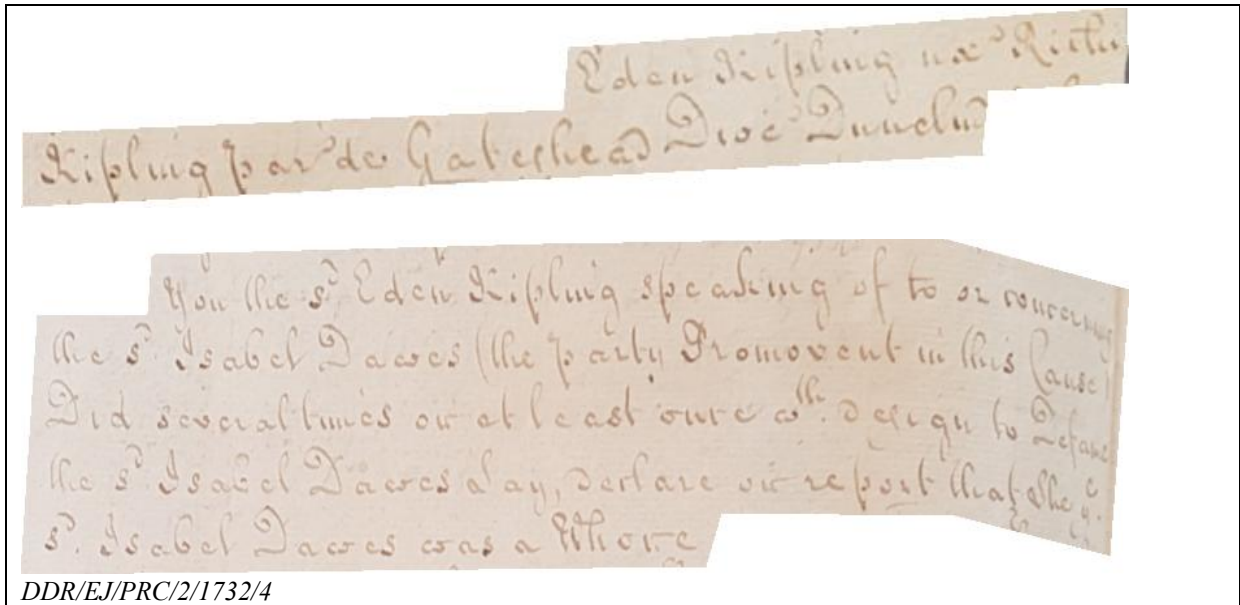 Eden Kipling ux Richi
Kipling par de Gateshead Dioc Dunelm
You the sd Eden Kipling speaking of to or concerning
the sd Isabel Dawes (the party Promovent in this Cause)
Did several times or at least once wth. design to Defame
the sd Isabel Dawes say, declare or report that she ye
sd. Isabel Dawes was a Whore
DDR/EJ/PRC/2/1732/4